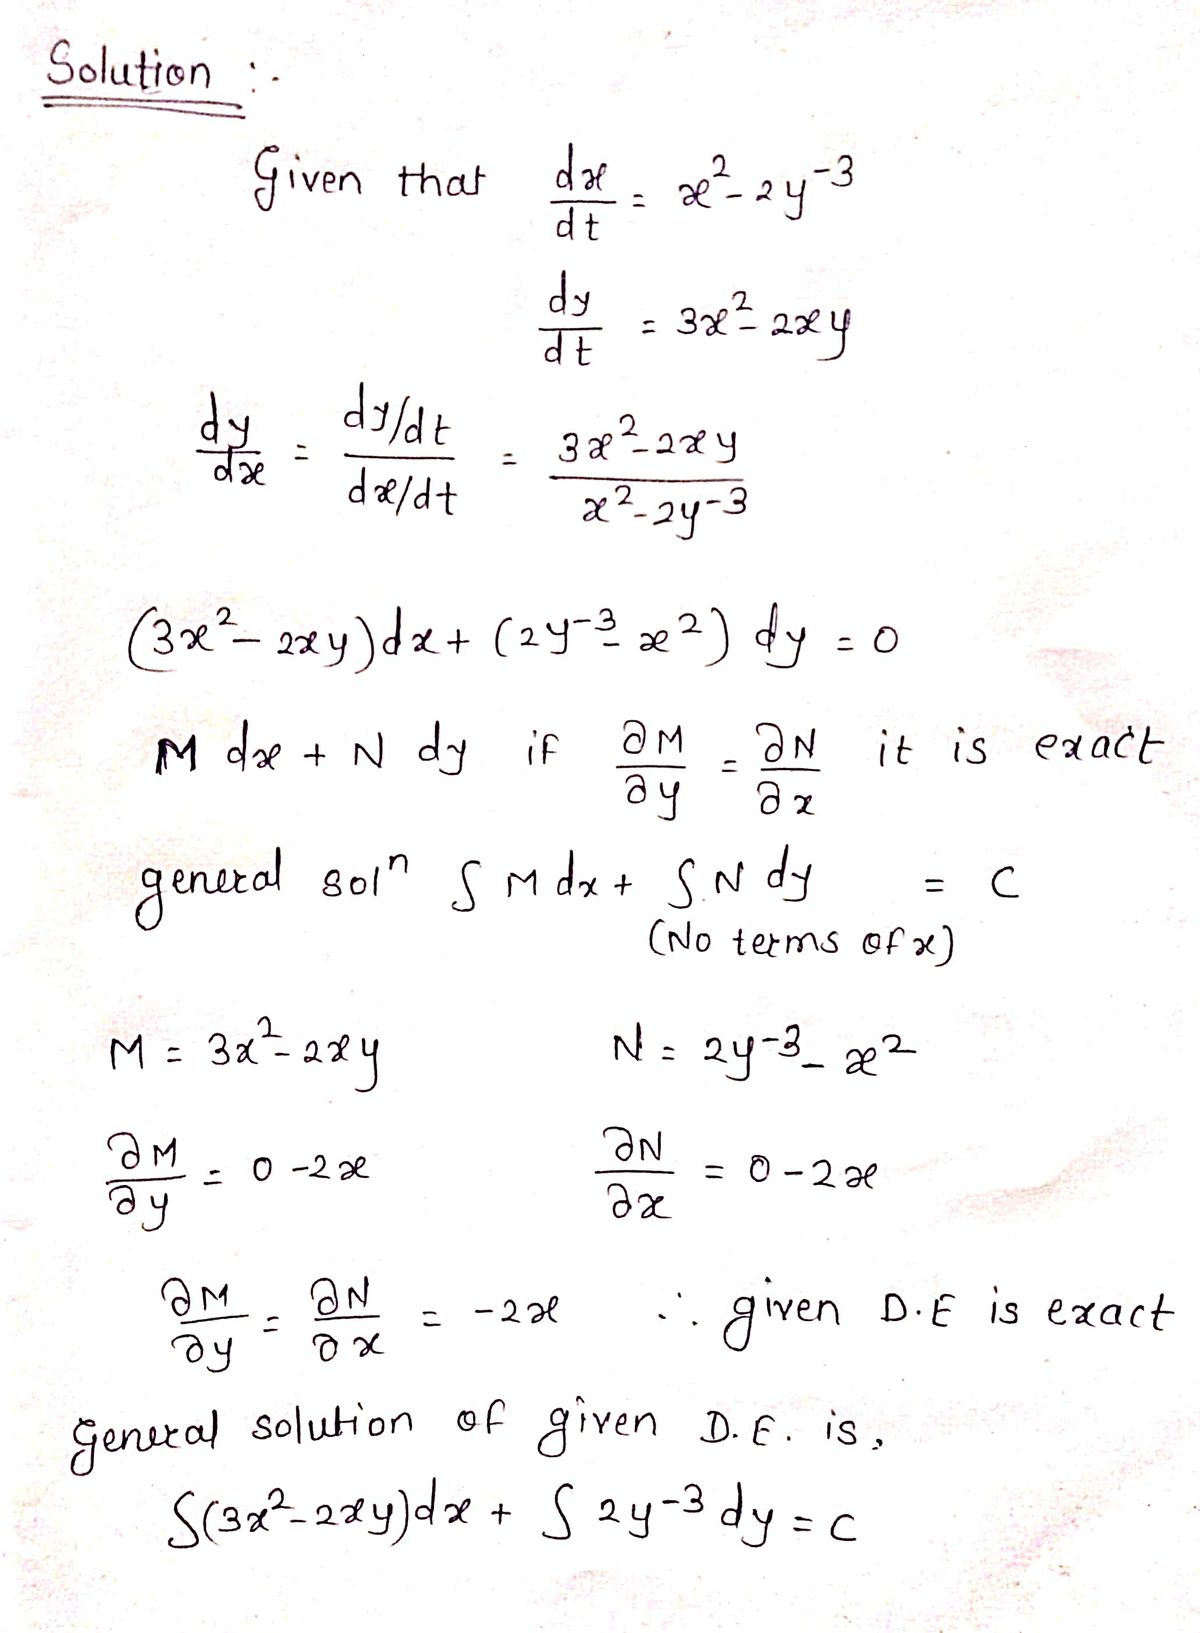 Solution :-
Given that dx/dt = x² - 2y⁻³
dy/dt = 3x² - 2xy
dy/dx = (dy/dt)/(dx/dt) = (3x² - 2xy)/(x² - 2y⁻³)
(3x² - 2xy)dx + (2y⁻³ - x²) dy = 0
M dx + N dy if ∂M/∂y = ∂N/∂x it is exact
general solⁿ ∫ M dx + ∫ N dy = C
(No terms of x)
M = 3x² - 2xy N = 2y⁻³ - x²
∂M/∂y = 0 - 2x ∂N/∂x = 0 - 2x
∂M/∂y = ∂N/∂x = -2x ∴ given D.E is exact
General solution of given D.E. is,
∫(3x² - 2xy)dx + ∫ 2y⁻³ dy = C